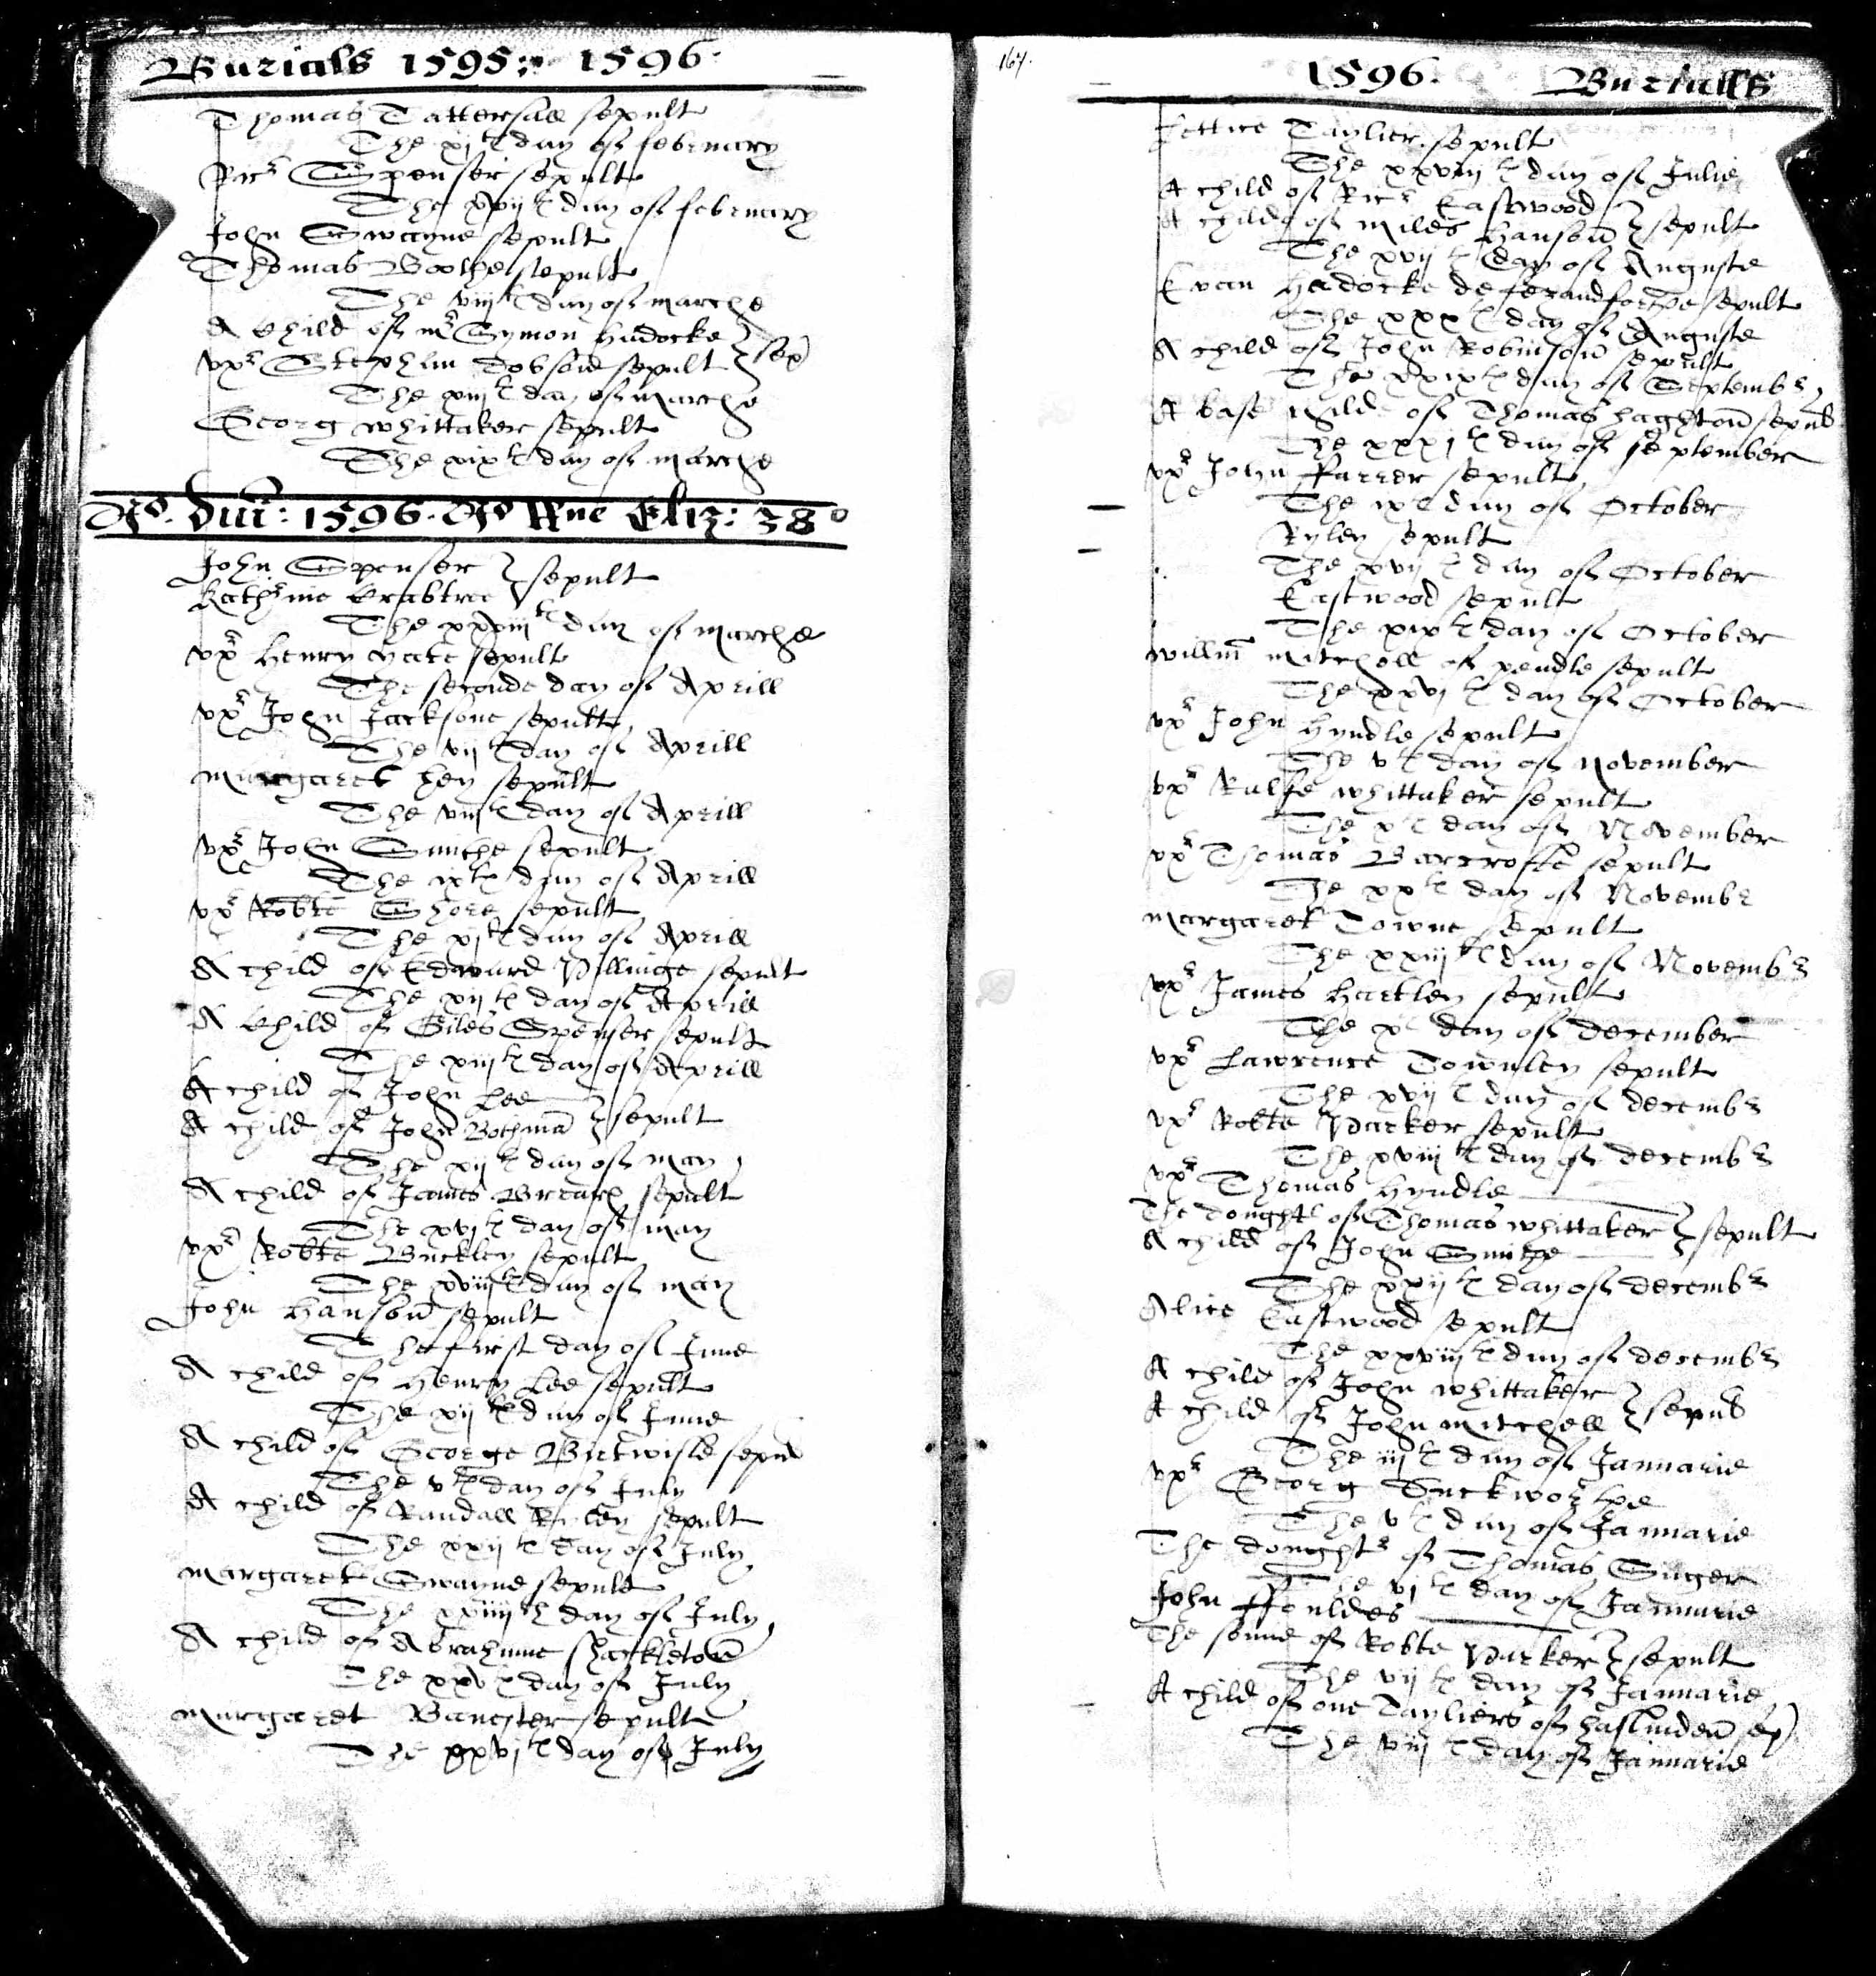 Burialls 1595: 1596
Thomas Tattersall sepult
The xjth day of february
Ricr Spenser sepult
The xvijth day of february
John Swayne sepult
Thomas Boothe sepult
The viijth day of marche
A Child of mr Symon Hadocke } sep
vxr Stephan Dobsone sepult
The xiijth day of marche
Georg whittaker sepult
The xixth day of marche
Ao. Dni: 1596. Ao Rne Eliz: 38o
John Spenser } sepult
Kathrine Crabtree
The xxviijth day of marche
vxr Henry yate sepult
The seconde day of Aprill
vxr John Jacksone sepult
The vijth day of Aprill
margaret hey sepult
The viijth day of Aprill
vxr John Smithe sepult
The ixth day of Aprill
vxr Robte Shore sepult
The xjth day of Aprill
A child of Edward Pillinge sepult
The xijth day of Aprill
A Child of Giles Spenser sepult
The xiijth day of Aprill
A child of John Lee
A child of John Bothma } sepult
The xijth day of may
A child of James Brearc sepult
The xvjth day of may
vxr Robte Buckley sepult
The xviijth day of may
John Hanson sepult
The first day of June
A child of Henry Lee sepult
The xijth day of June
A child of George Birtwisle sepul
The vth day of July
A child of Randall Ryley sepult
The xxijth day of July
margaret Swayne sepult
The xxiiijth day of July
A child of Abrahame shackleton
The xxvth day of July
margaret Banester sepult
The xxvjth day of July
167.
1596. Burialls
Lettice Taylier sepult
The xxviijth day of Julie
A child of Ricr Eastwood
A child of miles Hanson } sepult
The xvijth day of Auguste
Evan Hadocke de sepult
The xxxth day of Auguste
A child of John Robinson sepult
The xxixth day of Septembr
A base child of Thomas haghton sepult
The xxxjth day of september
vxr John ffarrer sepult
The ixth day of October
Ryley sepult
The xvijth day of October
Eastwood sepult
The xixth day of October
willm mitchell of pendle sepult
The xxvjth day of October
vxr John Hyndle sepult
The vth day of November
vxr Ralfe whittaker sepult
The xth day of November
vxr Thomas Barcrofte sepult
The xxth day of Novembr
margaret Towne sepult
The xxiijth day of Novembr
vxr James Hartley sepult
The xth day of december
vxr Lawrence Townley sepult
The xvijth day of decembr
vxr Robte Parker sepult
The xviijth day of decembr
vxr Thomas Hyndle
The doughtr of Thomas whittaker } sepult
A child of John Smithe
The xxijth day of decembr
Alice Eastwood sepult
The xxviijth day of decembr
A child of John whittaker
A child of John mitchell } sepult
The iijth day of Januarie
vxr Georg Duckworthe
The vth day of Januarie
The doughtr of Thomas Singer
The vjth day of Januarie
John ffouldes
The sonne of Robte Parker } sepult
The vijth day of Januarie
A child of one Tayliers of haslinden sep
The viijth day of Januarie